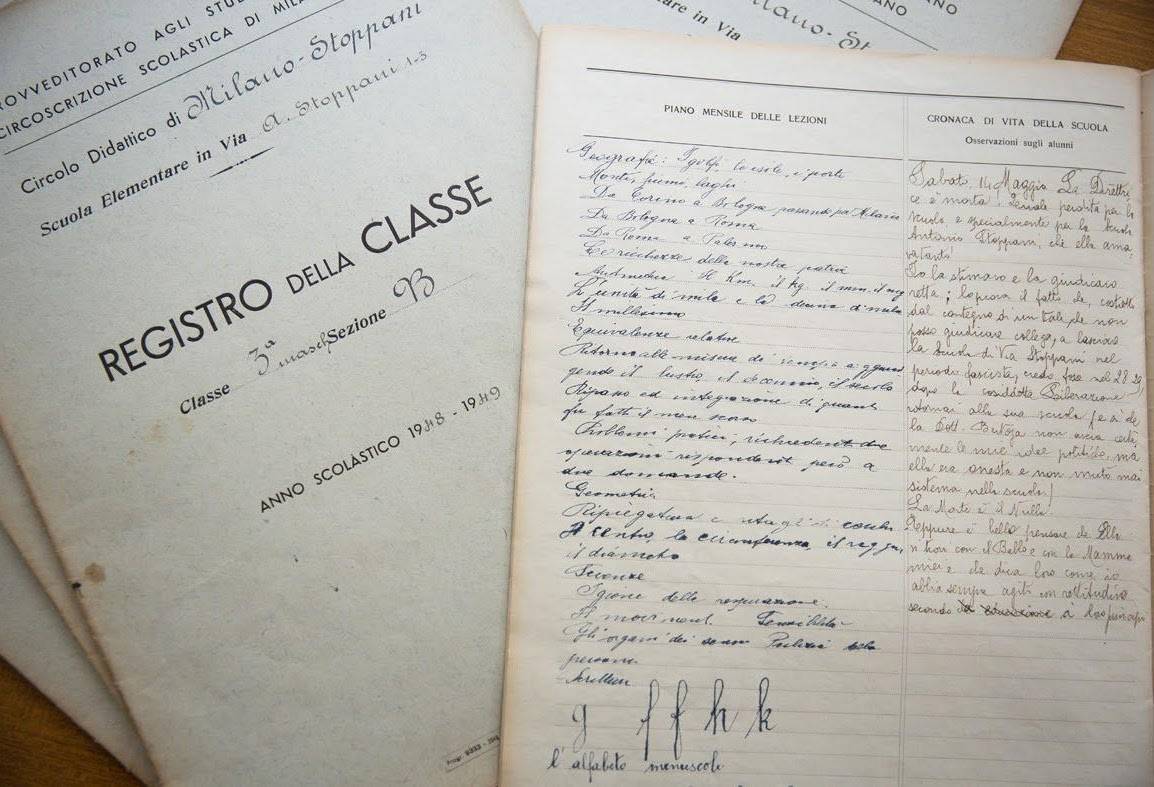 PROVVEDITORATO AGLI STU
CIRCOSCRIZIONE SCOLASTICA DI MILA
Circolo Didattico di Milano-Stoppani
Scuola Elementare in Via A. Stoppani 1-3
REGISTRO DELLA CLASSE
Classe 3ª masch Sezione B
ANNO SCOLASTICO 1948 - 1949
mentare in Via
PIANO MENSILE DELLE LEZIONI
Geografia: I golfi, le isole, i porti
Monti, fiumi, laghi
Da Torino a Bologna passando per Milano
Da Bologna a Roma
Da Roma a Palermo
Le ricchezze della nostra patria
Aritmetica Il Km. il Kg. il mm. il mg
L'unità di mila e la decina di mila
Il millesimo
Equivalenze relative
Ritorno alle misure di tempo aggiun
gendo il lustro, il decennio, il secolo
Ripasso ed integrazione di quanto
fu fatto il mese scorso
Problemi pratici, richiedenti due
operazioni rispondenti però a
due domande.
Geometria
Ripiegatura e ritagli di cerchi
Il centro, la circonferenza, il raggio,
il diametro
Scienze
Igiene della respirazione.
Il movimento. Sensibilità
Gli organi dei sensi Pulizia della
persona
Scrittura
g f f h k
l'alfabeto minuscolo
CRONACA DI VITA DELLA SCUOLA
Osservazioni sugli alunni
Sabato, 14 Maggio La Diretri
ce è morta! perdita per la
scuola e specialmente per la Scuola
Antonio Stoppani, che ella ama
va tanto!
Io la stimavo e la giudicavo
retta; lo prova il fatto che, costretta
dal contegno di un tale che non
posso giudicare collega, a lasciare
la Scuola di Via Stoppani nel
periodo fascista, credo fosse nel 28-29,
dopo la cosiddetta Liberazione
ritornai alla sua scuola (e sì che
la Dott. non aveva certa
mente le mie idee politiche, ma
ella era onesta e non mutò mai
sistema nella scuola!)
La Morte è il Nulla.
Eppure è bello pensare che Ella
si trovi con il Babbo e con la Mamma
miei e che dica loro come io
abbia sempre agito con rettitudine
secondo i loro principi